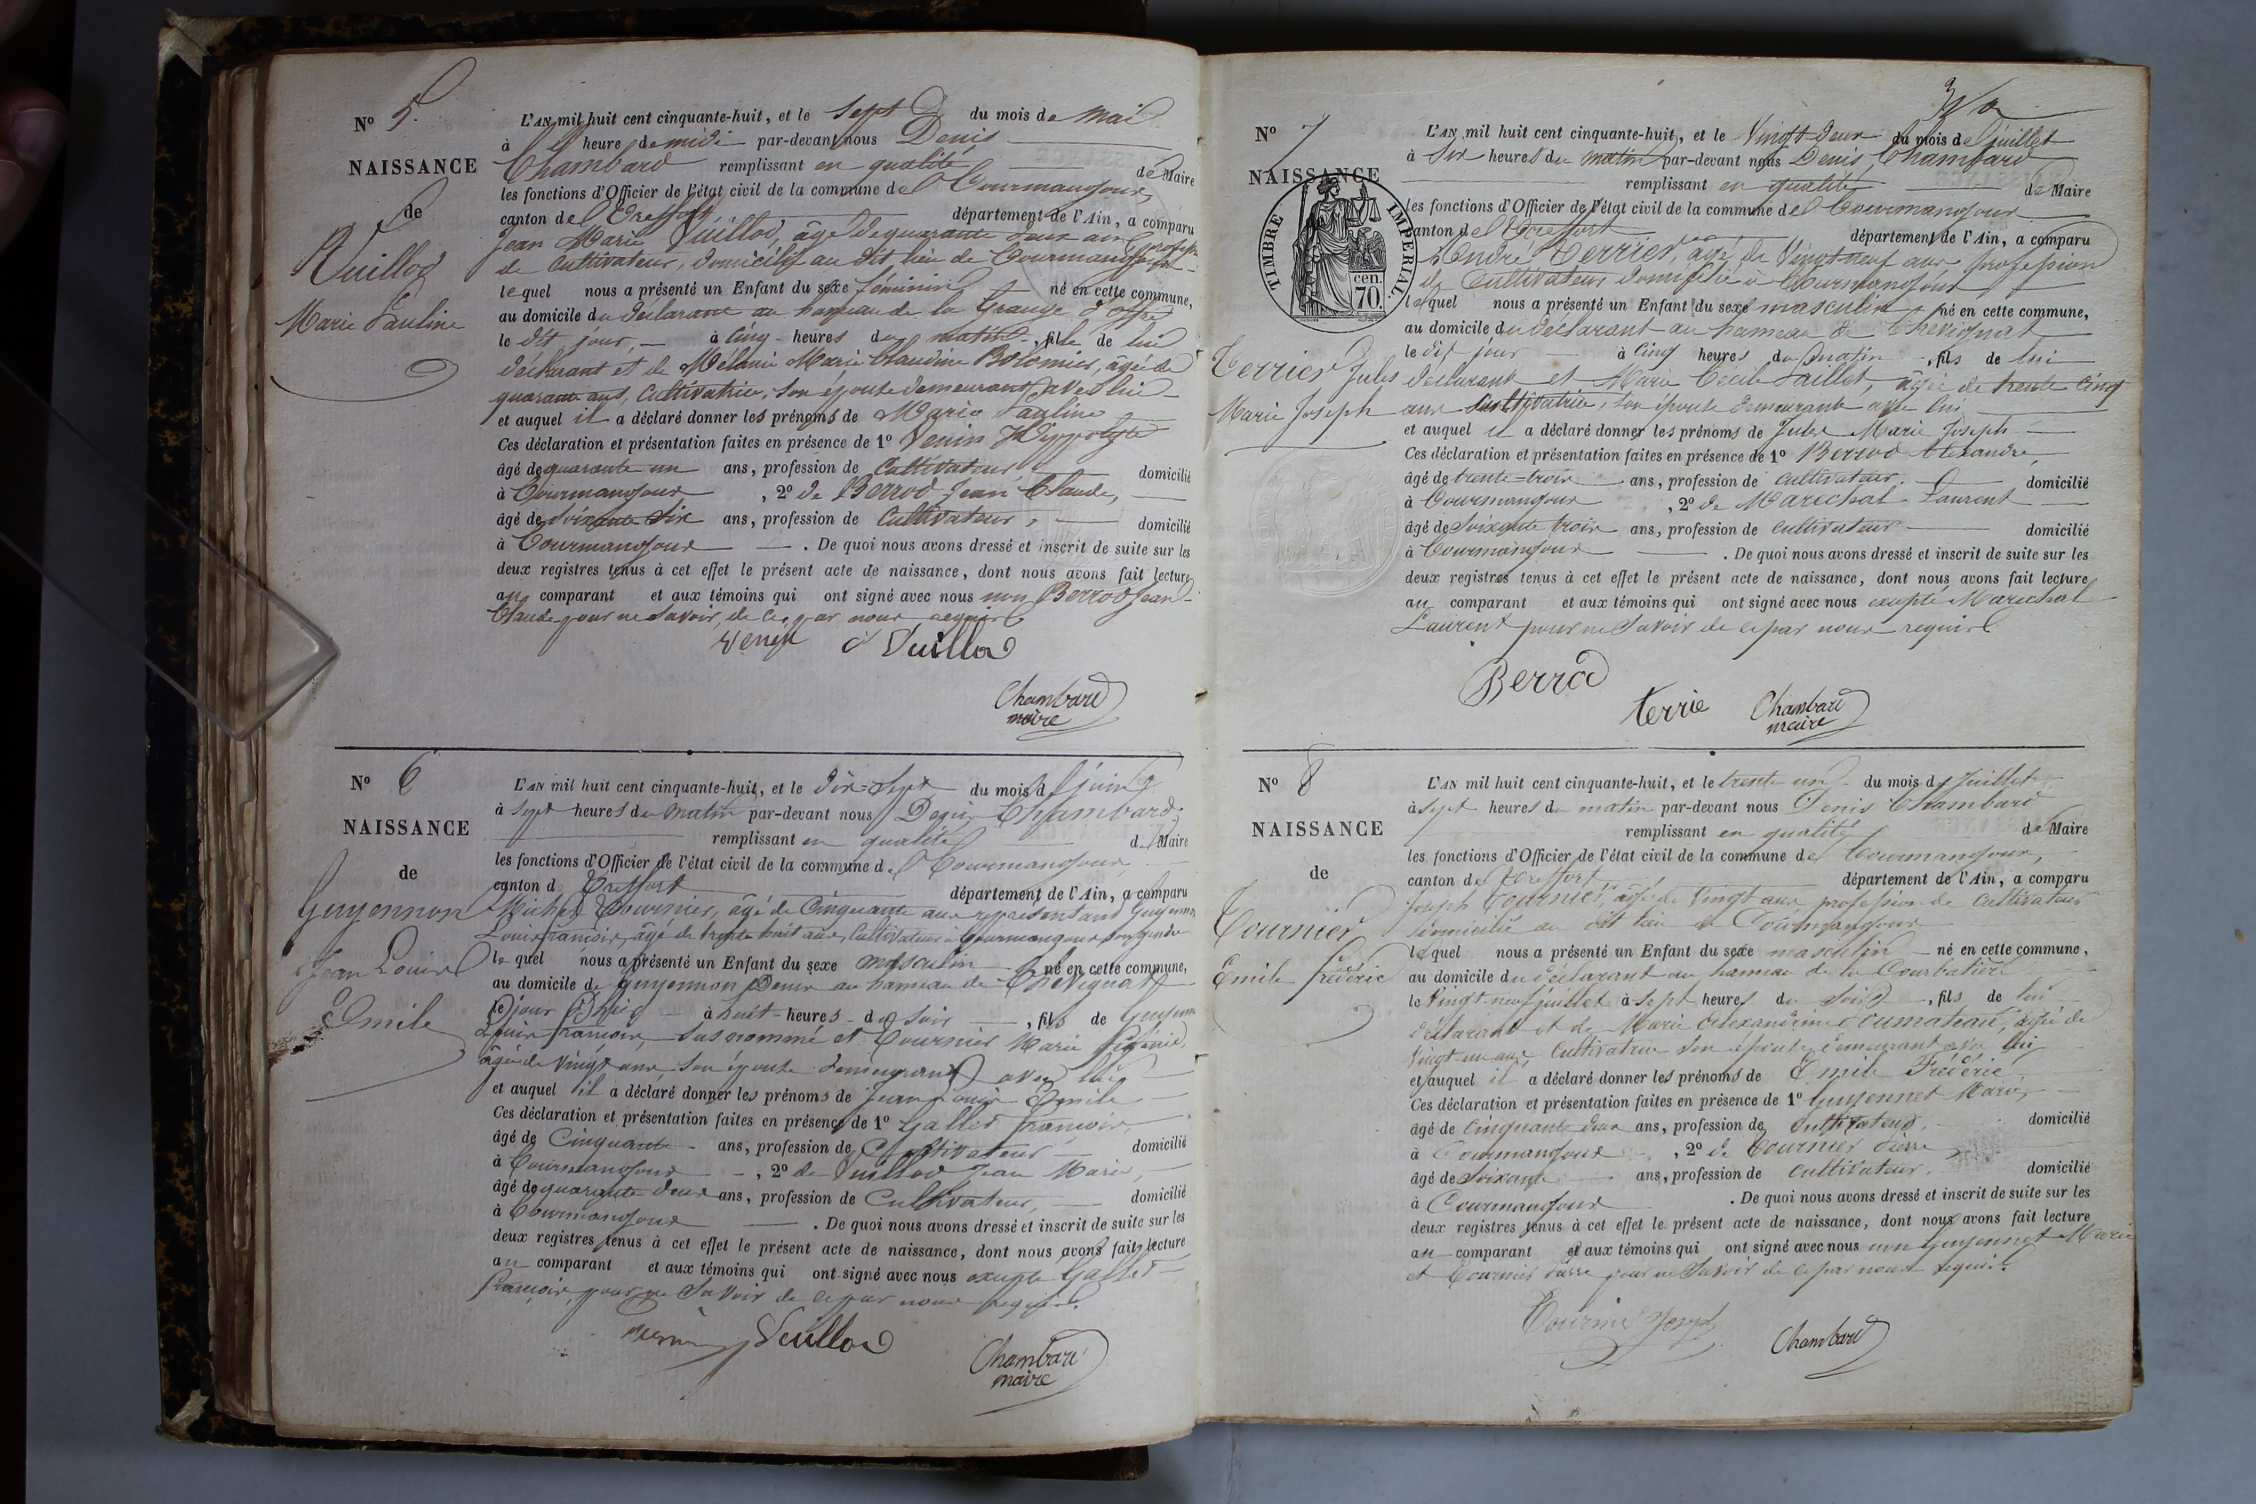 N° 5.
NAISSANCE
de
Vuillod
Marie Pauline
L'AN mil huit cent cinquante-huit, et le Sept du mois de Mai
à heure de midi par-devant nous Denis
Chambard remplissant en qualité de Maire
les fonctions d'Officier de l'état civil de la commune de Courmangoux,
canton de Treffort, département de l'Ain, a comparu
Jean Marie Vuillod, âgé de quarante deux ans, profession
de Cultivateur, domicilié au dit lieu de Courmangoux
lequel nous a présenté un Enfant du sexe féminin né en cette commune,
au domicile du déclarant au hameau de la Grange
le dit jour, à Cinq heures du matin, fille de lui
déclarant et de Mélanie Marie Claudine Bolomier, âgée de
quarante ans, Cultivatrice, son épouse demeurant avec lui
et auquel il a déclaré donner les prénoms de Marie Pauline
Ces déclaration et présentation faites en présence de 1° Venin Hippolyte
âgé de quarante un ans, profession de Cultivateur domicilié
à Courmangoux, 2° de Berrod Jean Claude,
âgé de Soixante Six ans, profession de Cultivateur, domicilié
à Courmangoux. De quoi nous avons dressé et inscrit de suite sur les
deux registres tenus à cet effet le présent acte de naissance, dont nous avons fait lecture
au comparant et aux témoins qui ont signé avec nous non Berrod Jean
Claude pour ne Savoir, de ce par nous requis
Venin Vuillod
Chambard
maire
N° 6
NAISSANCE
de
Guyennon
Jean Louis
Emile
L'AN mil huit cent cinquante-huit, et le Dix-Sept du mois de juin
à Sept heures du matin par-devant nous Denis Chambard,
remplissant en qualité de Maire
les fonctions d'Officier de l'état civil de la commune de Courmangoux
canton de Treffort département de l'Ain, a comparu
Michel Tournier, âgé de Cinquante ans représentant Guyennon
Louis François, âgé de trente huit ans, Cultivateur à Courmangoux son gendre
lequel nous a présenté un Enfant du sexe masculin né en cette commune,
au domicile de Guyennon Denis au hameau de Chevignat
le jour d'hier à huit heures du Soir, fils de Guyennon
Louis François, Susnommé et Tournier Marie
âgée de Vingt ans Son épouse demeurant avec lui
et auquel il a déclaré donner les prénoms de Jean Louis Emile
Ces déclaration et présentation faites en présence de 1° Gallet François,
âgé de Cinquante ans, profession de Cultivateur domicilié
à Courmangoux, 2° de Vuillod Jean Marie,
âgé de quarante-deux ans, profession de Cultivateur, domicilié
à Courmangoux. De quoi nous avons dressé et inscrit de suite sur les
deux registres tenus à cet effet le présent acte de naissance, dont nous avons fait lecture
au comparant et aux témoins qui ont signé avec nous excepté Gallet
François, pour ne Savoir de ce par nous requis.
Vuillod
Chambard
maire
N° 7
NAISSANCE
TIMBRE IMPERIAL
70 cen.
Terrier Jules
Marie Joseph
L'AN mil huit cent cinquante-huit, et le Vingt deux du mois de juillet
à Six heures du matin par-devant nous Denis Chambard
remplissant en qualité de Maire
les fonctions d'Officier de l'état civil de la commune de Courmangoux
canton de Treffort département de l'Ain, a comparu
André Terrier, âgé de Vingt neuf ans profession
de Cultivateur domicilié à Courmangoux
lequel nous a présenté un Enfant du sexe masculin né en cette commune,
au domicile du déclarant au hameau de Chevignat
le dit jour à Cinq heures du matin, fils de lui
déclarant et Marie Cécile Paillet, âgée de trente Cinq
ans Cultivatrice, son épouse demeurant avec lui,
et auquel il a déclaré donner les prénoms de Jules Marie Joseph
Ces déclaration et présentation faites en présence de 1° Berrod Alexandre,
âgé de trente-trois ans, profession de Cultivateur domicilié
à Courmangoux, 2° de Maréchal Laurent
âgé de Soixante trois ans, profession de Cultivateur domicilié
à Courmangoux. De quoi nous avons dressé et inscrit de suite sur les
deux registres tenus à cet effet le présent acte de naissance, dont nous avons fait lecture
au comparant et aux témoins qui ont signé avec nous excepté Maréchal
Laurent pour ne Savoir de ce par nous requis
Berrod
terrie Chambard
maire
N° 8
NAISSANCE
de
Tournier
Emile Frédéric
L'AN mil huit cent cinquante-huit, et le trente un du mois de Juillet
à Sept heures du matin par-devant nous Denis Chambard
remplissant en qualité de Maire
les fonctions d'Officier de l'état civil de la commune de Courmangoux,
canton de Treffort département de l'Ain, a comparu
Joseph Tournier, âgé de Vingt ans profession de Cultivateur
domicilié au dit lieu de Courmangoux
lequel nous a présenté un Enfant du sexe masculin né en cette commune,
au domicile du déclarant au hameau de la Courbatière
le Vingt-neuf juillet à Sept heures du Soir, fils de lui
déclarant et de Marie Alexandrine âgée de
Vingt-un ans, Cultivatrice Son épouse demeurant avec lui
et auquel il a déclaré donner les prénoms de Emile Frédéric
Ces déclaration et présentation faites en présence de 1° Guyennet Marie,
âgé de Cinquante deux ans, profession de Cultivateur domicilié
à Courmangoux, 2° de Tournier Pierre
âgé de Soixante ans, profession de Cultivateur, domicilié
à Courmangoux. De quoi nous avons dressé et inscrit de suite sur les
deux registres tenus à cet effet le présent acte de naissance, dont nous avons fait lecture
au comparant et aux témoins qui ont signé avec nous non Guyennet Marie
et Tournier Pierre pour ne Savoir de ce par nous requis.
Tournier Joseph
Chambard